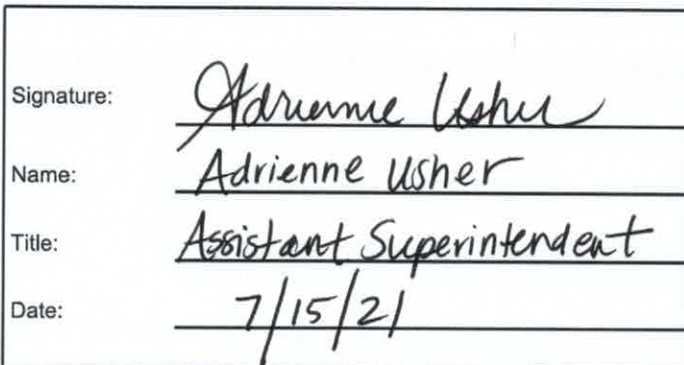 Signature: Adrienne Usher
Name: Adrienne Usher
Title: Assistant Superintendent
Date: 7/15/21